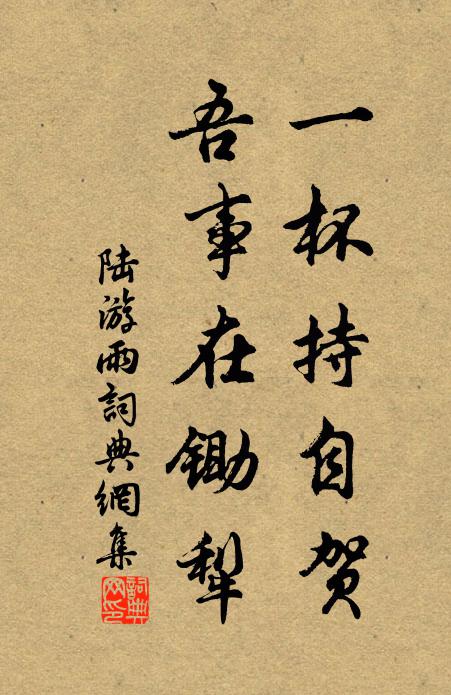 一杯持自贺
吾事在锄犁
陆游雨詞典網集
詞典网印